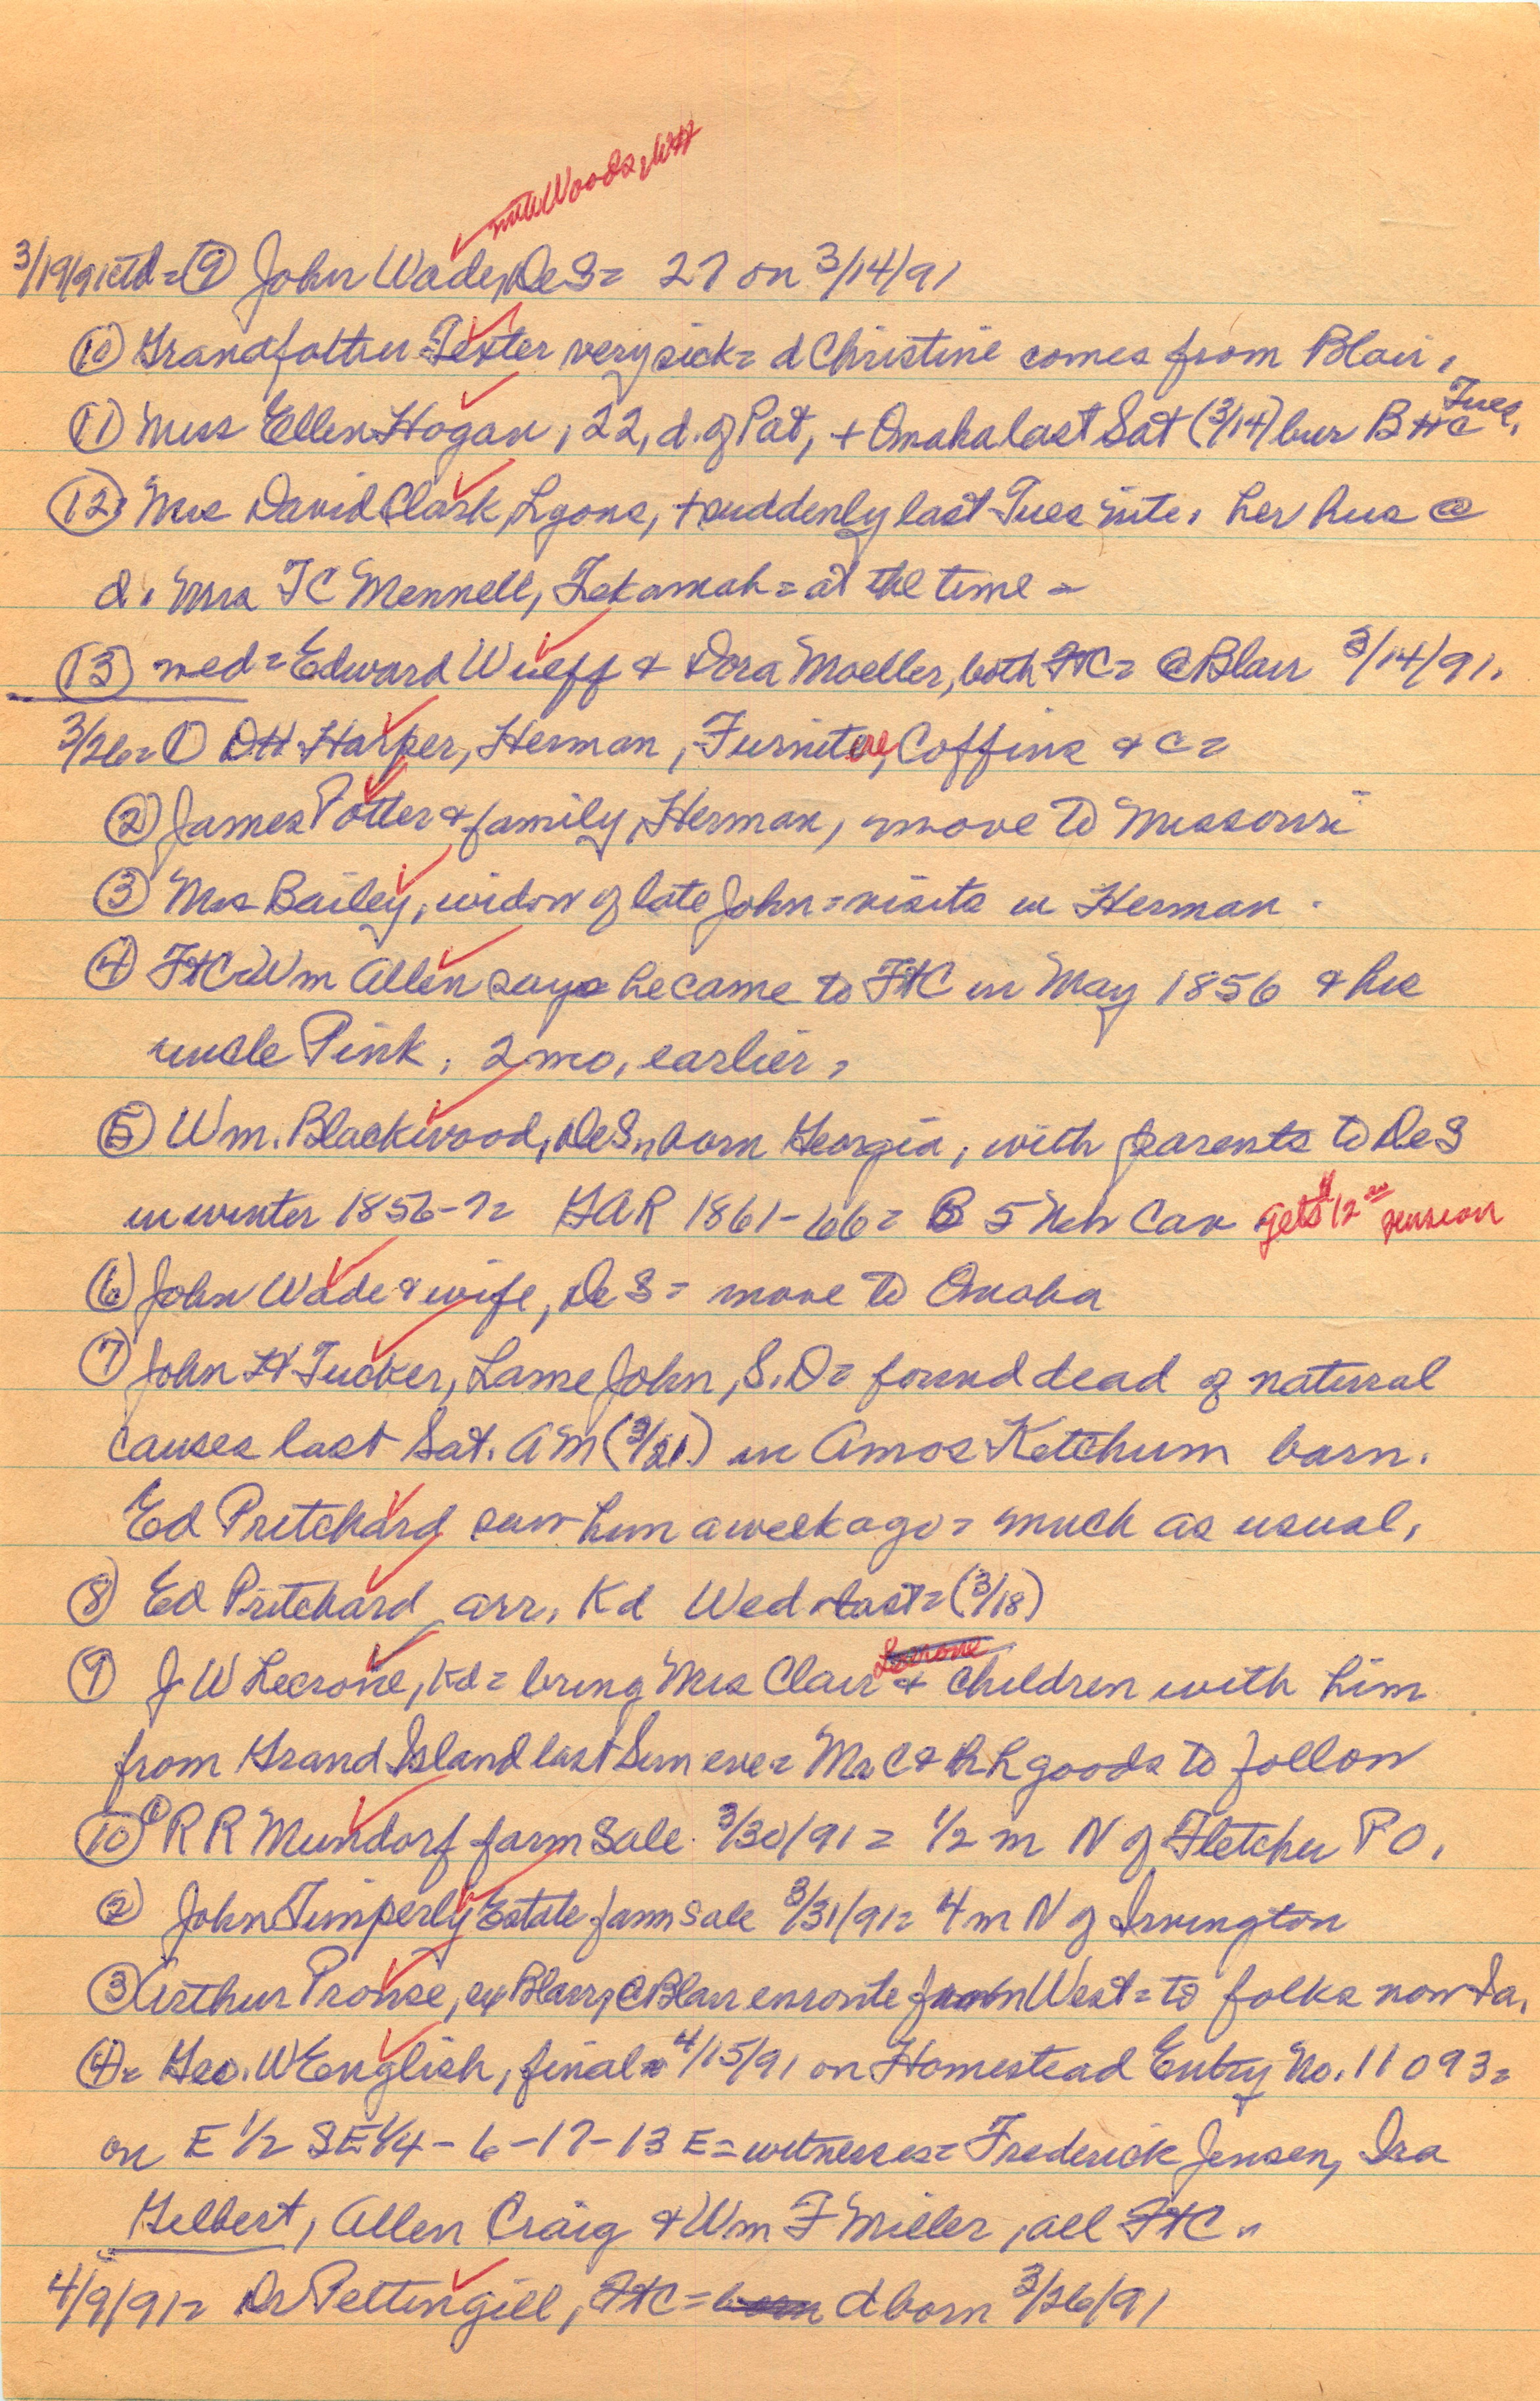 Woods, WH
3/19/91ctd = (9) John Wade, DeS = 27 on 3/14/91
(10) Grandfather Texter very sick = d Christine comes from Blair,
(11) Miss Ellen Hogan, 22, d. of Pat, + Omaha last Sat (3/14) bur B Tues,
(12) Mrs David Clark, Lyons, + suddenly last Tues nite, her hus @
d. Mrs TC Mennell, Tekamah = at the time =
(13) wed = Edward Wulff & Dora Moeller, both FtC = @ Blair 3/14/91.
3/26 = (1) DH Harper, Herman, Furniture, Coffins & c =
(2) James Potter & family, Herman, move to Missouri
(3) Mrs Bailey, widow of late John = visits in Herman.
(4) FtC = Wm Allen says he came to FtC in May 1856 & his
uncle Pink, 2 mo, earlier,
(5) Wm. Blackwood, DeS, born Georgia, with parents to DeS
in winter 1856-7 = GAR 1861-66 = B 5 Neb Cav gets $12 00 pension
(6) John Wade & wife, DeS = move to Omaha
(7) John H Tucker, Lame John, S.D = found dead of natural
causes last Sat. AM (3/21) in Amos Ketchum barn.
Ed Pritchard saw him a week ago = much as usual,
(8) Ed Pritchard, arr, Kd Wed last = (3/18)
Lecrone
(9) J W Lecrone, Kd = bring Mrs Clair & children with him
from Grand Island last Sun eve = Mr C & h h goods to follow
(10) (1) R R Mundorf farm sale 3/30/91 = 1/2 m N of Fletcher P O,
(2) John Timperly Estate farm sale 3/31/91 = 4 m N of Irvington
(3) Arthur Prouse, ex Blair, @ Blair enroute from West = to folks now Ia,
(4) = Geo. W English, final = 4/15/91 on Homestead Entry No. 11093 =
on E 1/2 SE 1/4 - 6 - 17 - 13 E = witnesses = Frederick Jensen, Ira
Gilbert, Allen Craig & Wm F Miller, all FtC.
4/9/91 = Dr Pettingill, FtC = born d born 3/26/91